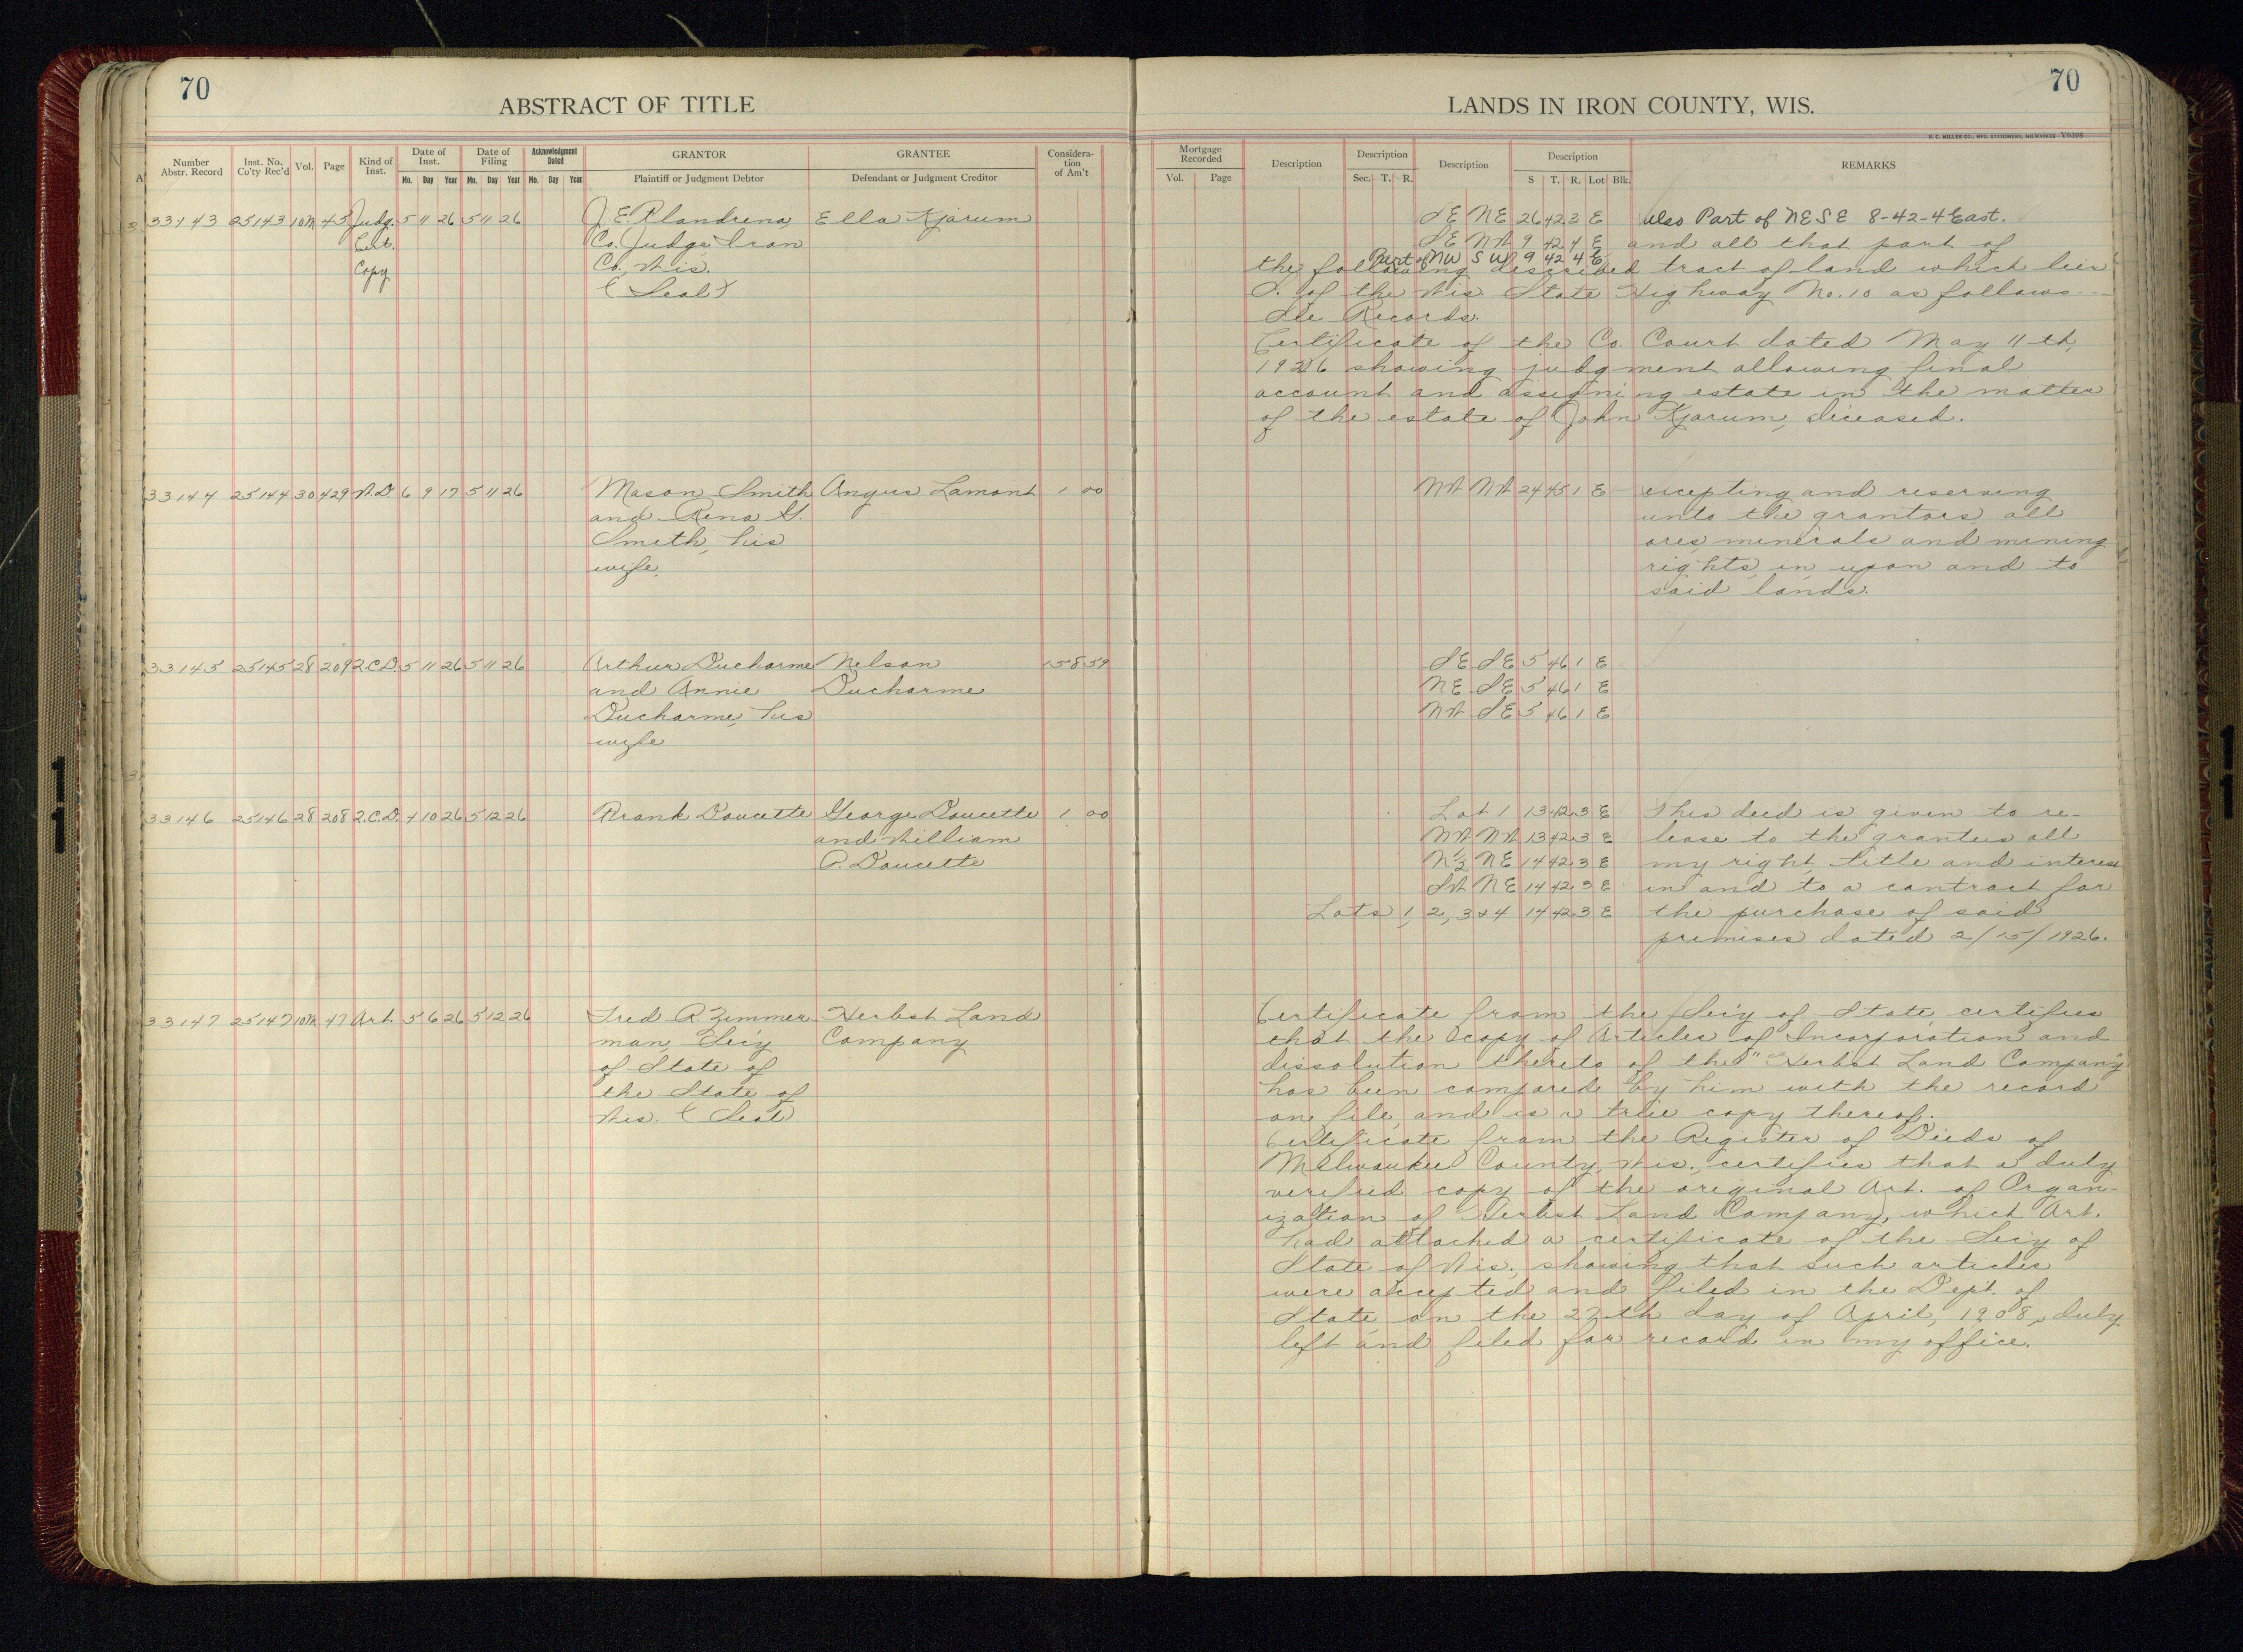 70
ABSTRACT OF TITLE
Number Abstr. Record
Inst. No. Co'ty Rec'd
Vol.
Page
Kind of Inst.
Date of Inst.
Mo. Day Year
Date of Filing
Mo. Day Year
Acknowledgment Dated
Mo. Day Year
GRANTOR
Plaintiff or Judgment Debtor
GRANTEE
Defendant or Judgment Creditor
Considera-
tion
of Am't
33143 25143 10M 45 Judg. 5 11 26 5 11 26 Ella Kjarum
Co. Judge Iron
Copy Co., Wis.
(Seal)
33144 25144 30 429 W.D. 6 9 17 5 11 26 Mason Smith Angus Lamont 1 00
and Rena G.
Smith, his
wife.
33145 25145 28 209 Q.C.D. 5 11 26 5 11 26 Arthur Ducharme Nelson 1585
and Annie Ducharme
Ducharme, his
wife
33146 25146 28 208 Q.C.D. 4 10 26 5 12 26 Frank Doucette George Doucette 1 00
and William
P. Doucette
33147 25147 10M 47 Art. 5 6 26 5 12 26 Fred R Zimmer- Herbst Land
man, Sec'y Company
of State of
the State of
Wis. (Seal)
70
LANDS IN IRON COUNTY, WIS.
H. C. MILLER CO., MFG. STATIONERS, MILWAUKEE Y9398
Mortgage Recorded
Vol. Page
Description
Description
Sec. T. R.
Description
Description
S T. R. Lot Blk.
REMARKS
SE NE 26 42 3 E Also Part of NESE 8-42-4 East.
SE NW 9 42 4 E and all that part of
Part of NW SW 9 42 4 E
the following described tract of land which lies
S. of the Wis. State Highway No. 10 as follows --
See Records.
Certificate of the Co. Court dated May 11th,
1926 showing judgment allowing final
account and assigning estate in the matter
of the estate of John Kjarum, deceased.
NW NW 24 45 1 E excepting and reserving
unto the grantors all
ores, minerals and mining
rights, in, upon and to
said lands.
SE SE 5 46 1 E
NE SE 5 46 1 E
NW SE 5 46 1 E
Lot 1 13 42 3 E This deed is given to re-
NW NW 13 42 3 E lease to the grantees all
N½ NE 14 42 3 E my right, title and interest
SW NE 14 42 3 E in and to a contract for
Lots 1, 2, 3 & 4 14 42 3 E the purchase of said
premises dated 2/15/1926.
Certificate from the Sec'y of State, certifies
that the copy of Articles of Incorporation and
dissolution thereto of the "Herbst Land Company"
has been compared by him with the record
on file, and is a true copy thereof.
Certificate from the Register of Deeds of
Milwaukee County, Wis., certifies that a duly
verified copy of the original Art. of Organ-
ization of Herbst Land Company, which Art.
had attached a certificate of the Sec'y of
State of Wis., showing that such articles
were accepted and filed in the Dept. of
State, on the 27th day of April, 1908, duly
left and filed for record in my office.